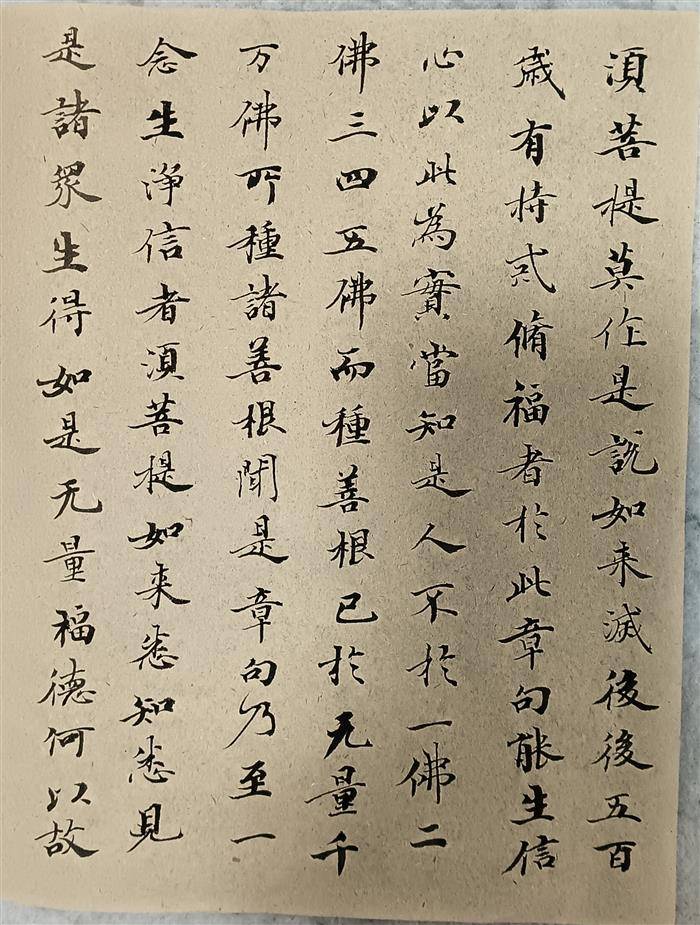 須菩提莫作是說如来滅後後五百
歲有持戒脩福者於此章句能生信
心以此為實當知是人不於一佛二
佛三四五佛而種善根已於无量千
万佛所種諸善根聞是章句乃至一
念生淨信者須菩提如来悉知悉見
是諸眾生得如是无量福德何以故